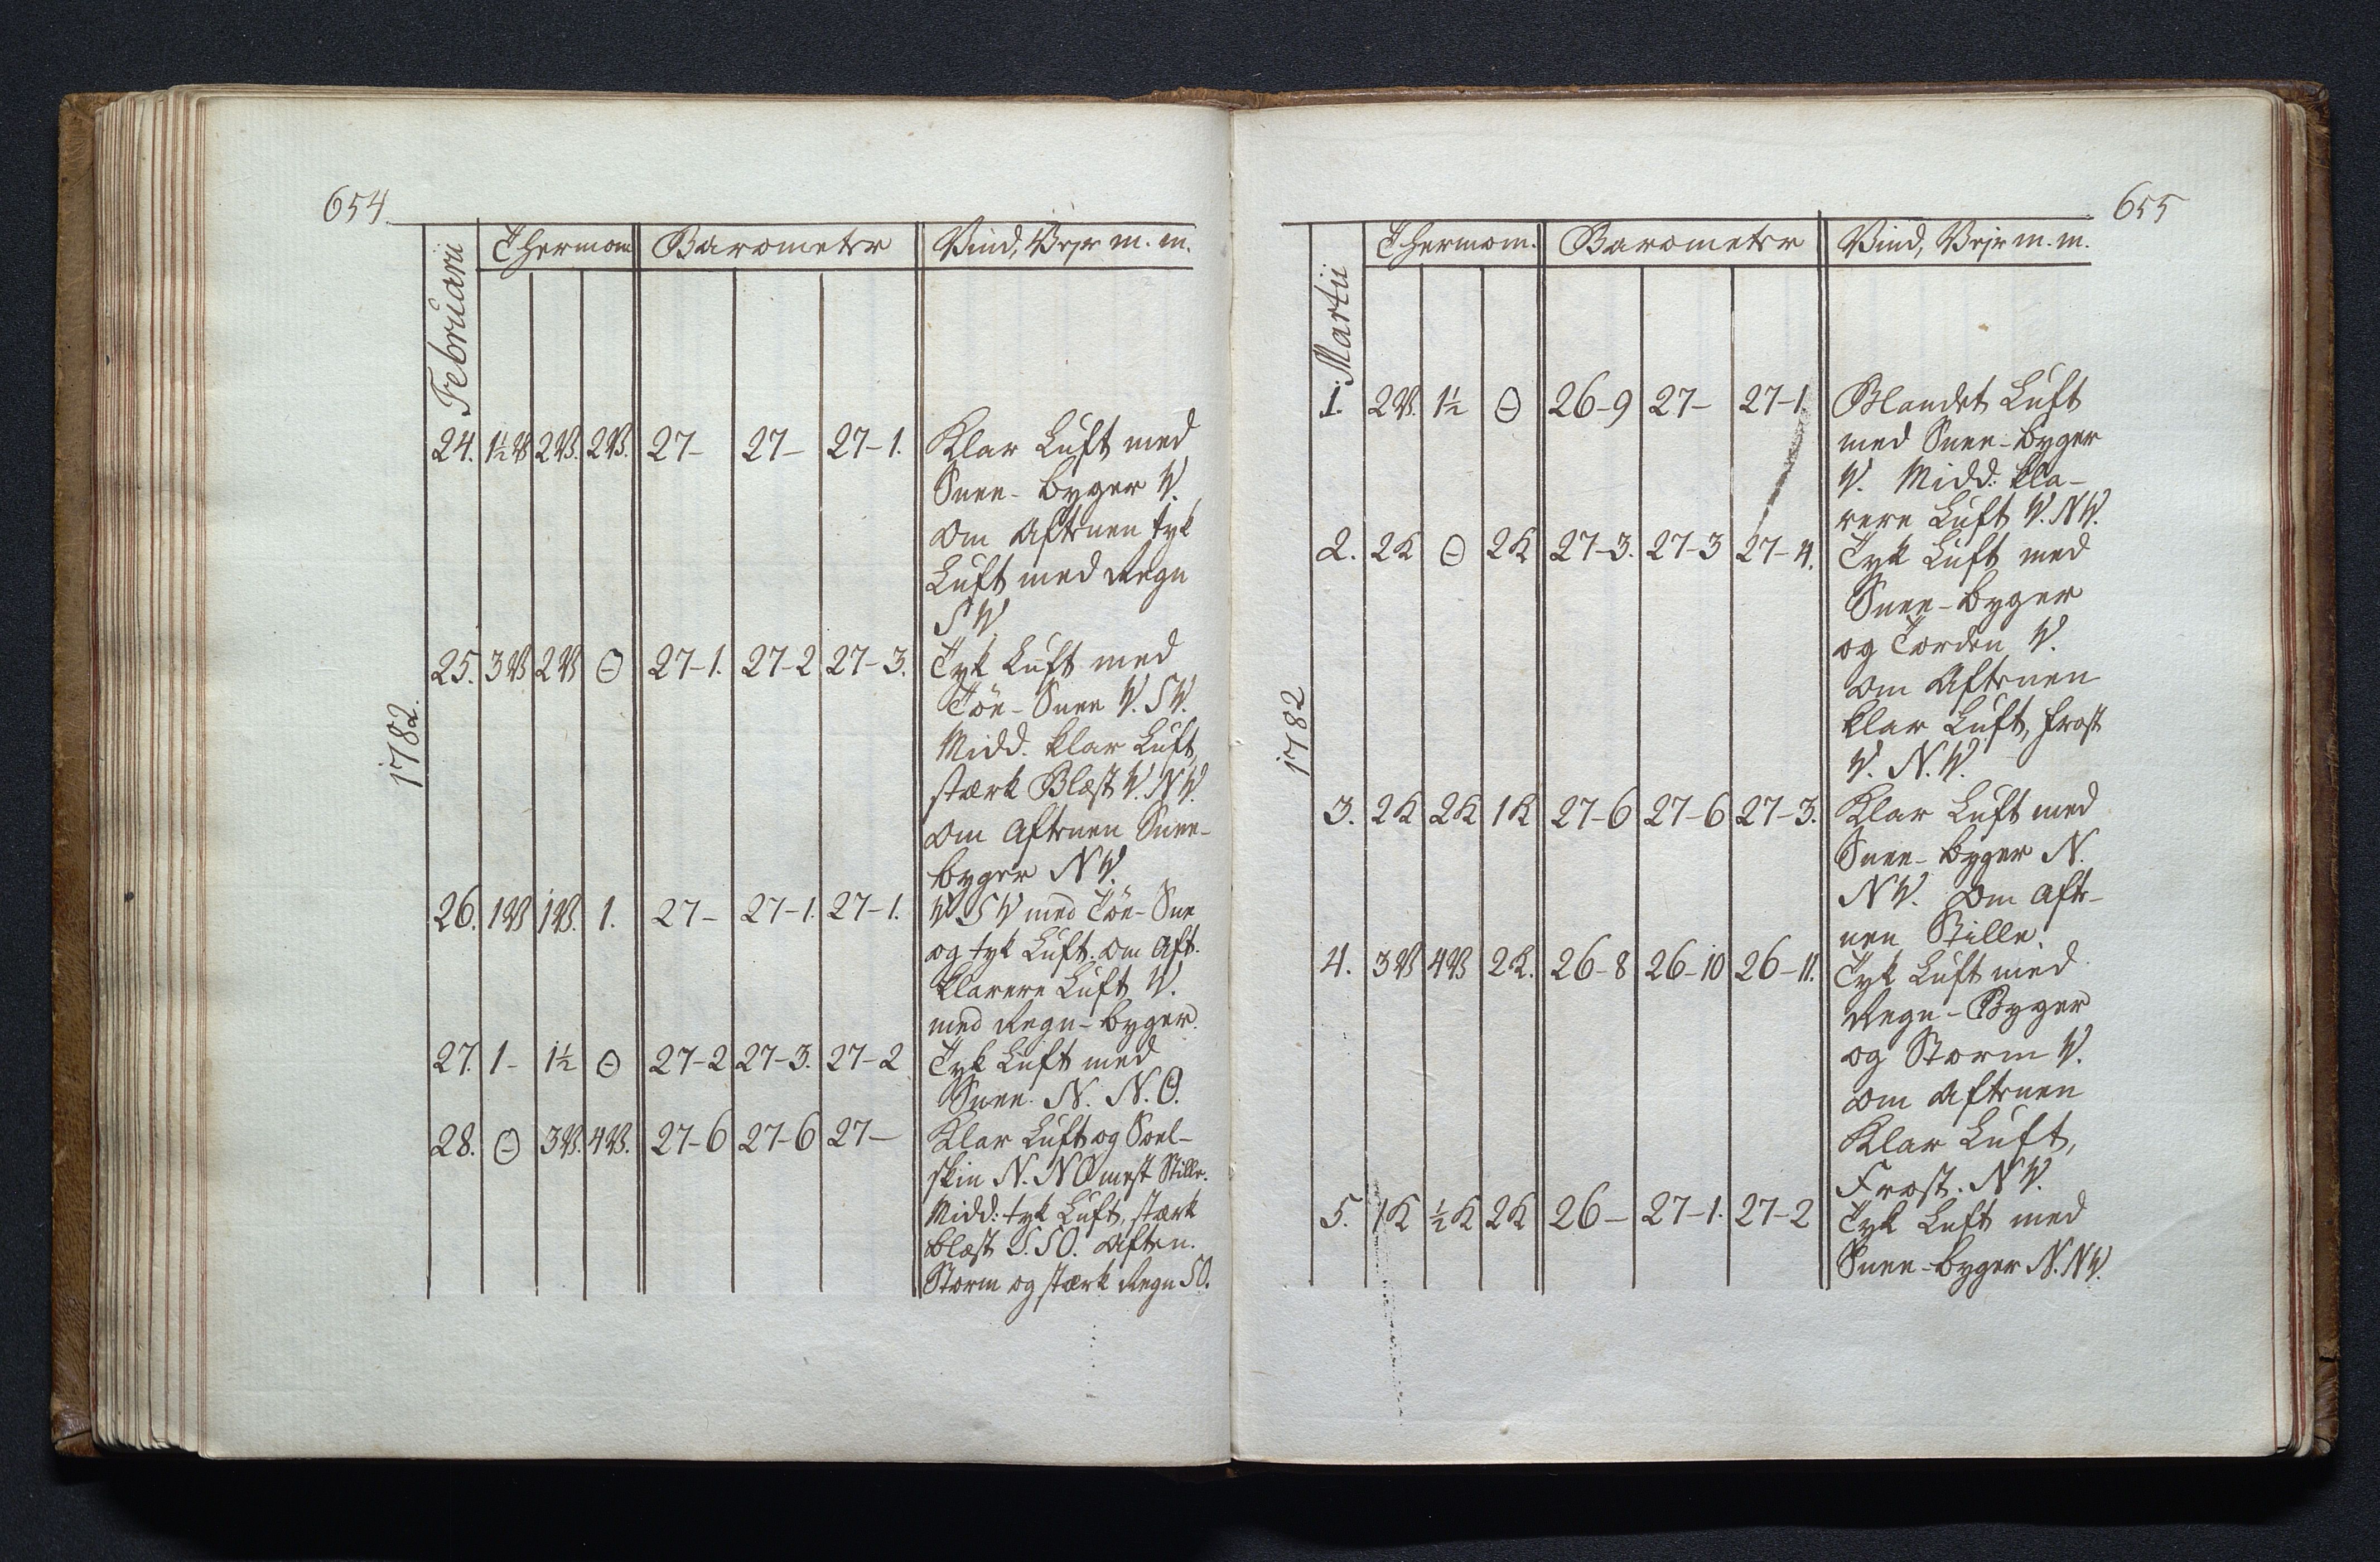 654
Februarii
Thermom Barometer Vind, Vejr m. m.
1782.
24. 1½V 2V. 2V. 27- 27- 27-1. Klar Luft med
Snee-byger V.
om Aftenen tyk
Luft med Regn
SV
25. 3V 2V ⊖ 27-1. 27-2 27-3. Tyk Luft med
Töe-Snee V. SV.
Midd. klar Luft,
stærk Blæst V. NV.
om Aftenen Snee-
byger NV.
26. 1V 1V. 1. 27- 27-1. 27-1. V SV med Töe-Sne
og tyk Luft. om Aft.
klarere Luft V.
med Regn-byger.
27. 1- 1½ ⊖ 27-2 27-3. 27-2 Tyk Luft med
Snee. N. N.O.
28. ⊖ 3V. 4V. 27-6 27-6 27- Klar Luft og Soel-
skin N. NO mest Stille.
Midd: tyk Luft, stærk
blæst S. SO. Aften.
Storm og stærk Regn SO.
655
Martii
Thermom. Barometer Vind, Vejr m. m.
1782
1. 2V. 1½ ⊖ 26-9 27- 27-1. Blandet Luft
med Snee-byger
V. Midd: kla-
rere Luft V. NV.
2. 2K ⊖ 2K 27-3. 27-3 27-4. Tyk Luft med
Snee-byger
og Torden V.
om Aftenen
klar Luft, frost
V. N.V.
3. 2K 2K 1K 27-6 27-6 27-3. Klar Luft med
Snee-byger N.
NV. om Afte-
nen Stille.
4. 3V 4V 2K. 26-8 26-10 26-11. Tyk Luft med
Regn-Byger
og Storm V.
om Aftenen
Klar Luft,
Frost. NV.
5. 1K ½K 2K 26- 27-1. 27-2 Tyk Luft med
Snee-byger N. NV.